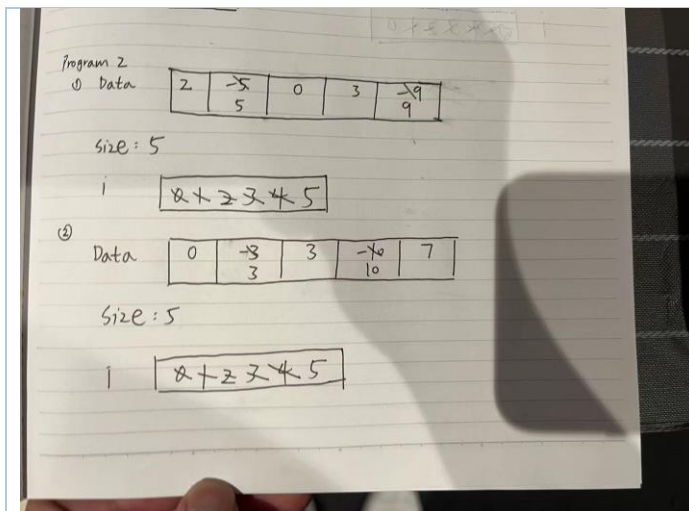 Program 2
① Data 2 -5 0 3 -9
5 9
size: 5
i 0 1 2 3 4 5
②
Data 0 -3 3 -10 7
3 10
Size: 5
i 0 1 2 3 4 5